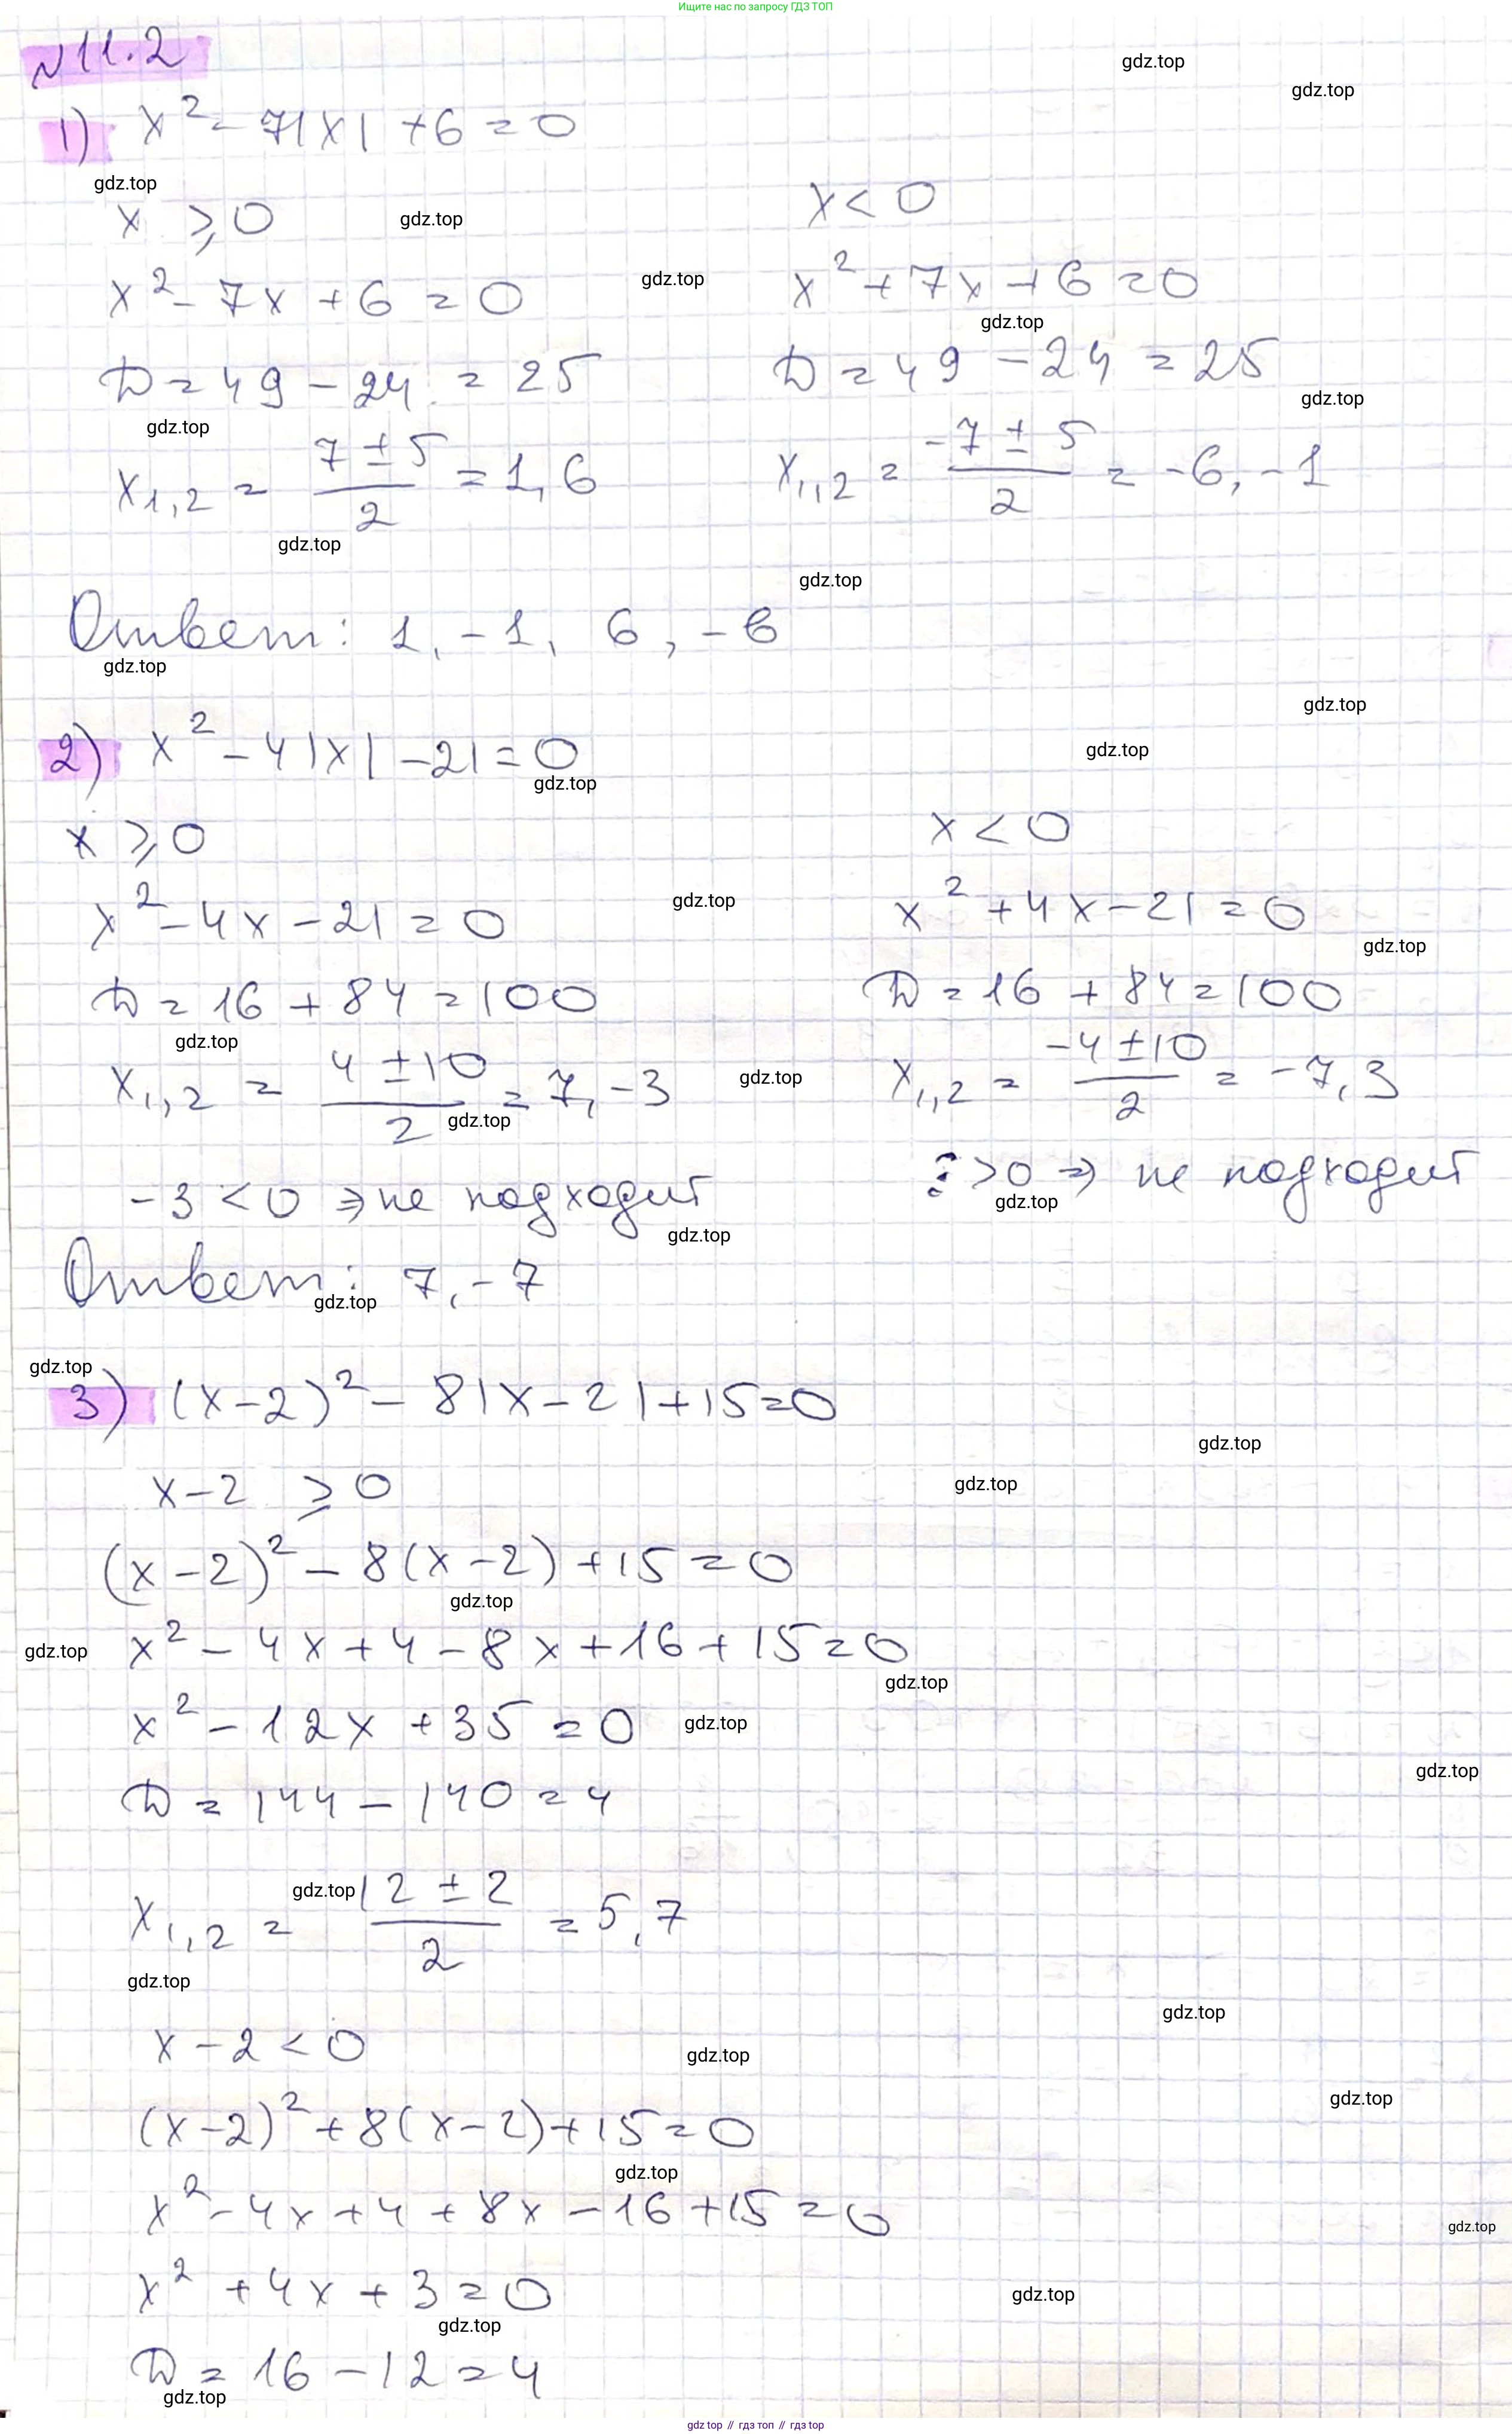 Ищите нас по запросу ГДЗ ТОП
N11.2
gdz.top
gdz.top
1) x² - 7|x| + 6 = 0
gdz.top
x ≥ 0
gdz.top
x² - 7x + 6 = 0
D = 49 - 24 = 25
gdz.top
x₁,₂ = (7 ± 5)/2 = 1, 6
gdz.top
x < 0
gdz.top
x² + 7x + 6 = 0
gdz.top
D = 49 - 24 = 25
gdz.top
x₁,₂ = (-7 ± 5)/2 = -6, -1
gdz.top
Ответ: 1, -1, 6, -6
gdz.top
gdz.top
2) x² - 4|x| - 21 = 0
gdz.top
gdz.top
x ≥ 0
x² - 4x - 21 = 0
gdz.top
D = 16 + 84 = 100
gdz.top
x₁,₂ = (4 ± 10)/2 = 7, -3
gdz.top
gdz.top
-3 < 0 ⇒ не подходит
gdz.top
x < 0
x² + 4x - 21 = 0
gdz.top
D = 16 + 84 = 100
x₁,₂ = (-4 ± 10)/2 = -7, 3
> 0 ⇒ не подходит
gdz.top
Ответ: 7, -7
gdz.top
gdz.top
3) (x - 2)² - 8|x - 2| + 15 = 0
gdz.top
x - 2 ≥ 0
gdz.top
(x - 2)² - 8(x - 2) + 15 = 0
gdz.top
gdz.top
x² - 4x + 4 - 8x + 16 + 15 = 0
gdz.top
x² - 12x + 35 = 0
gdz.top
gdz.top
D = 144 - 140 = 4
gdz.top
x₁,₂ = (12 ± 2)/2 = 5, 7
gdz.top
gdz.top
x - 2 < 0
gdz.top
gdz.top
(x - 2)² + 8(x - 2) + 15 = 0
gdz.top
x² - 4x + 4 + 8x - 16 + 15 = 0
gdz.top
x² + 4x + 3 = 0
gdz.top
gdz.top
D = 16 - 12 = 4
gdz.top
gdz top // гдз топ // gdz top